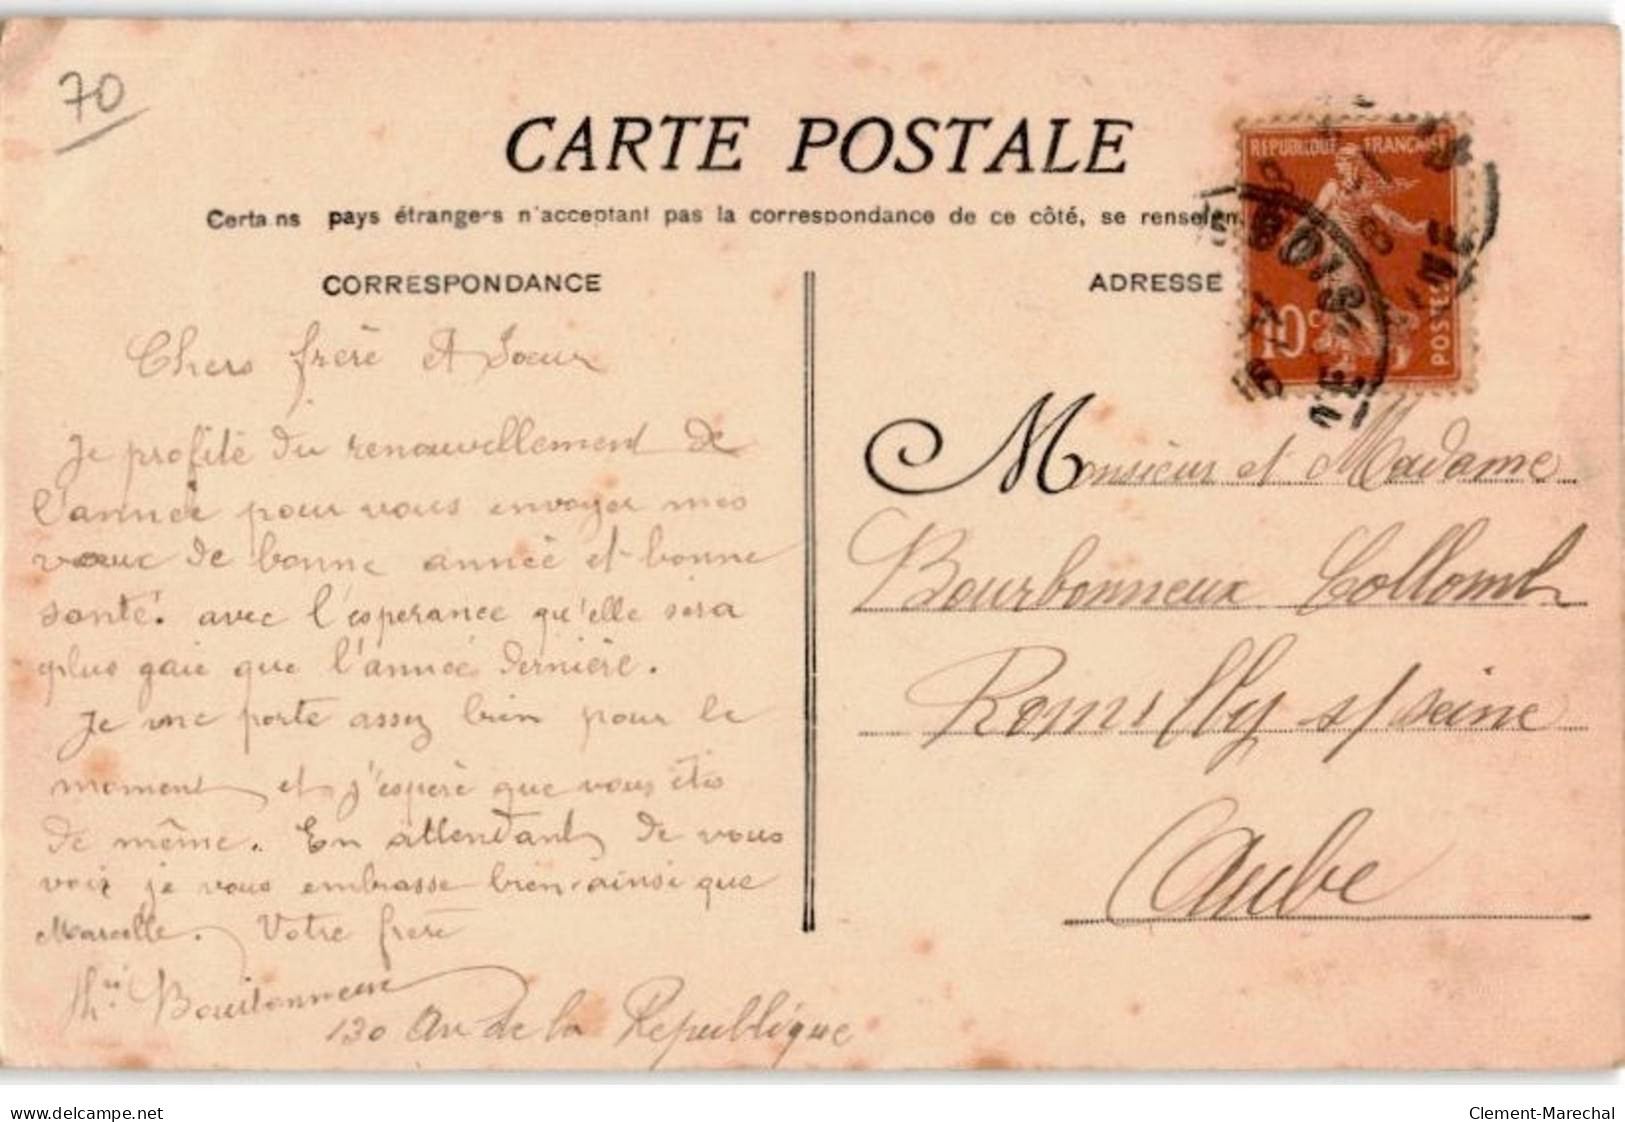 70
CARTE POSTALE
Certains pays étrangers n'acceptant pas la correspondance de ce côté, se renseign
CORRESPONDANCE
ADRESSE
REPUBLIQUE FRANÇAISE
10c
POSTES
Chers frère et Soeur
Je profite du renouvellement de
l'année pour vous envoyer mes
vœux de bonne année et bonne
santé. avec l'esperance qu'elle sera
plus gaie que l'année dernière.
Je me porte assez bien pour le
moment et j'espère que vous êtes
de même. En attendant de vous
voir je vous embrasse bien ainsi que
Marcelle. Votre frère
Bourbonneux
130 Av de la Republique
Monsieur et Madame
Bourbonneux Collomb
Romilly s/ Seine
Aube
www.delcampe.net
Clement-Marechal